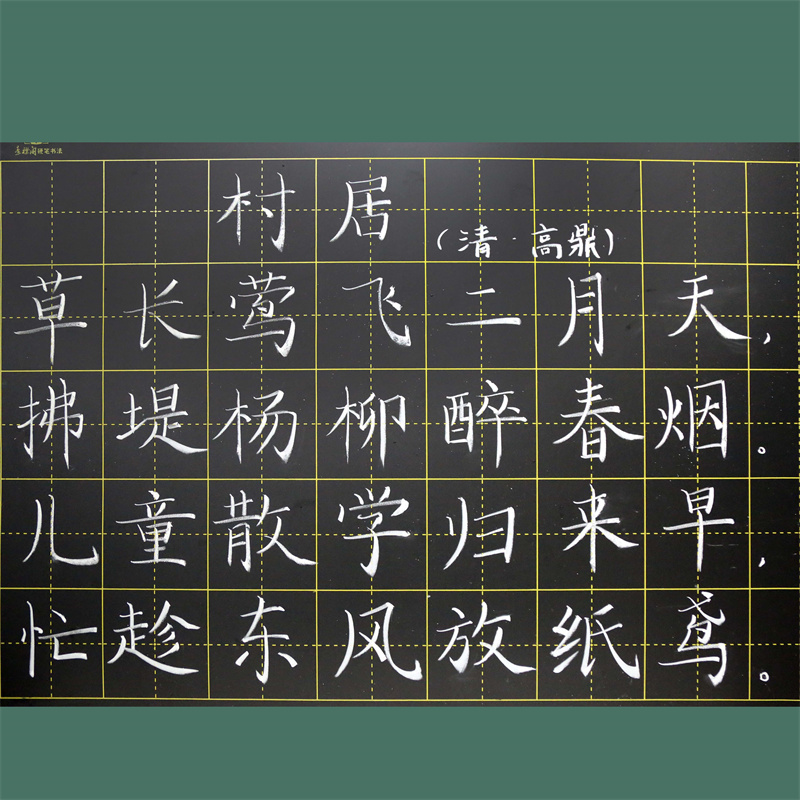 硬笔书法
村居
(清·高鼎)
草长莺飞二月天,
拂堤杨柳醉春烟。
儿童散学归来早,
忙趁东风放纸鸢。